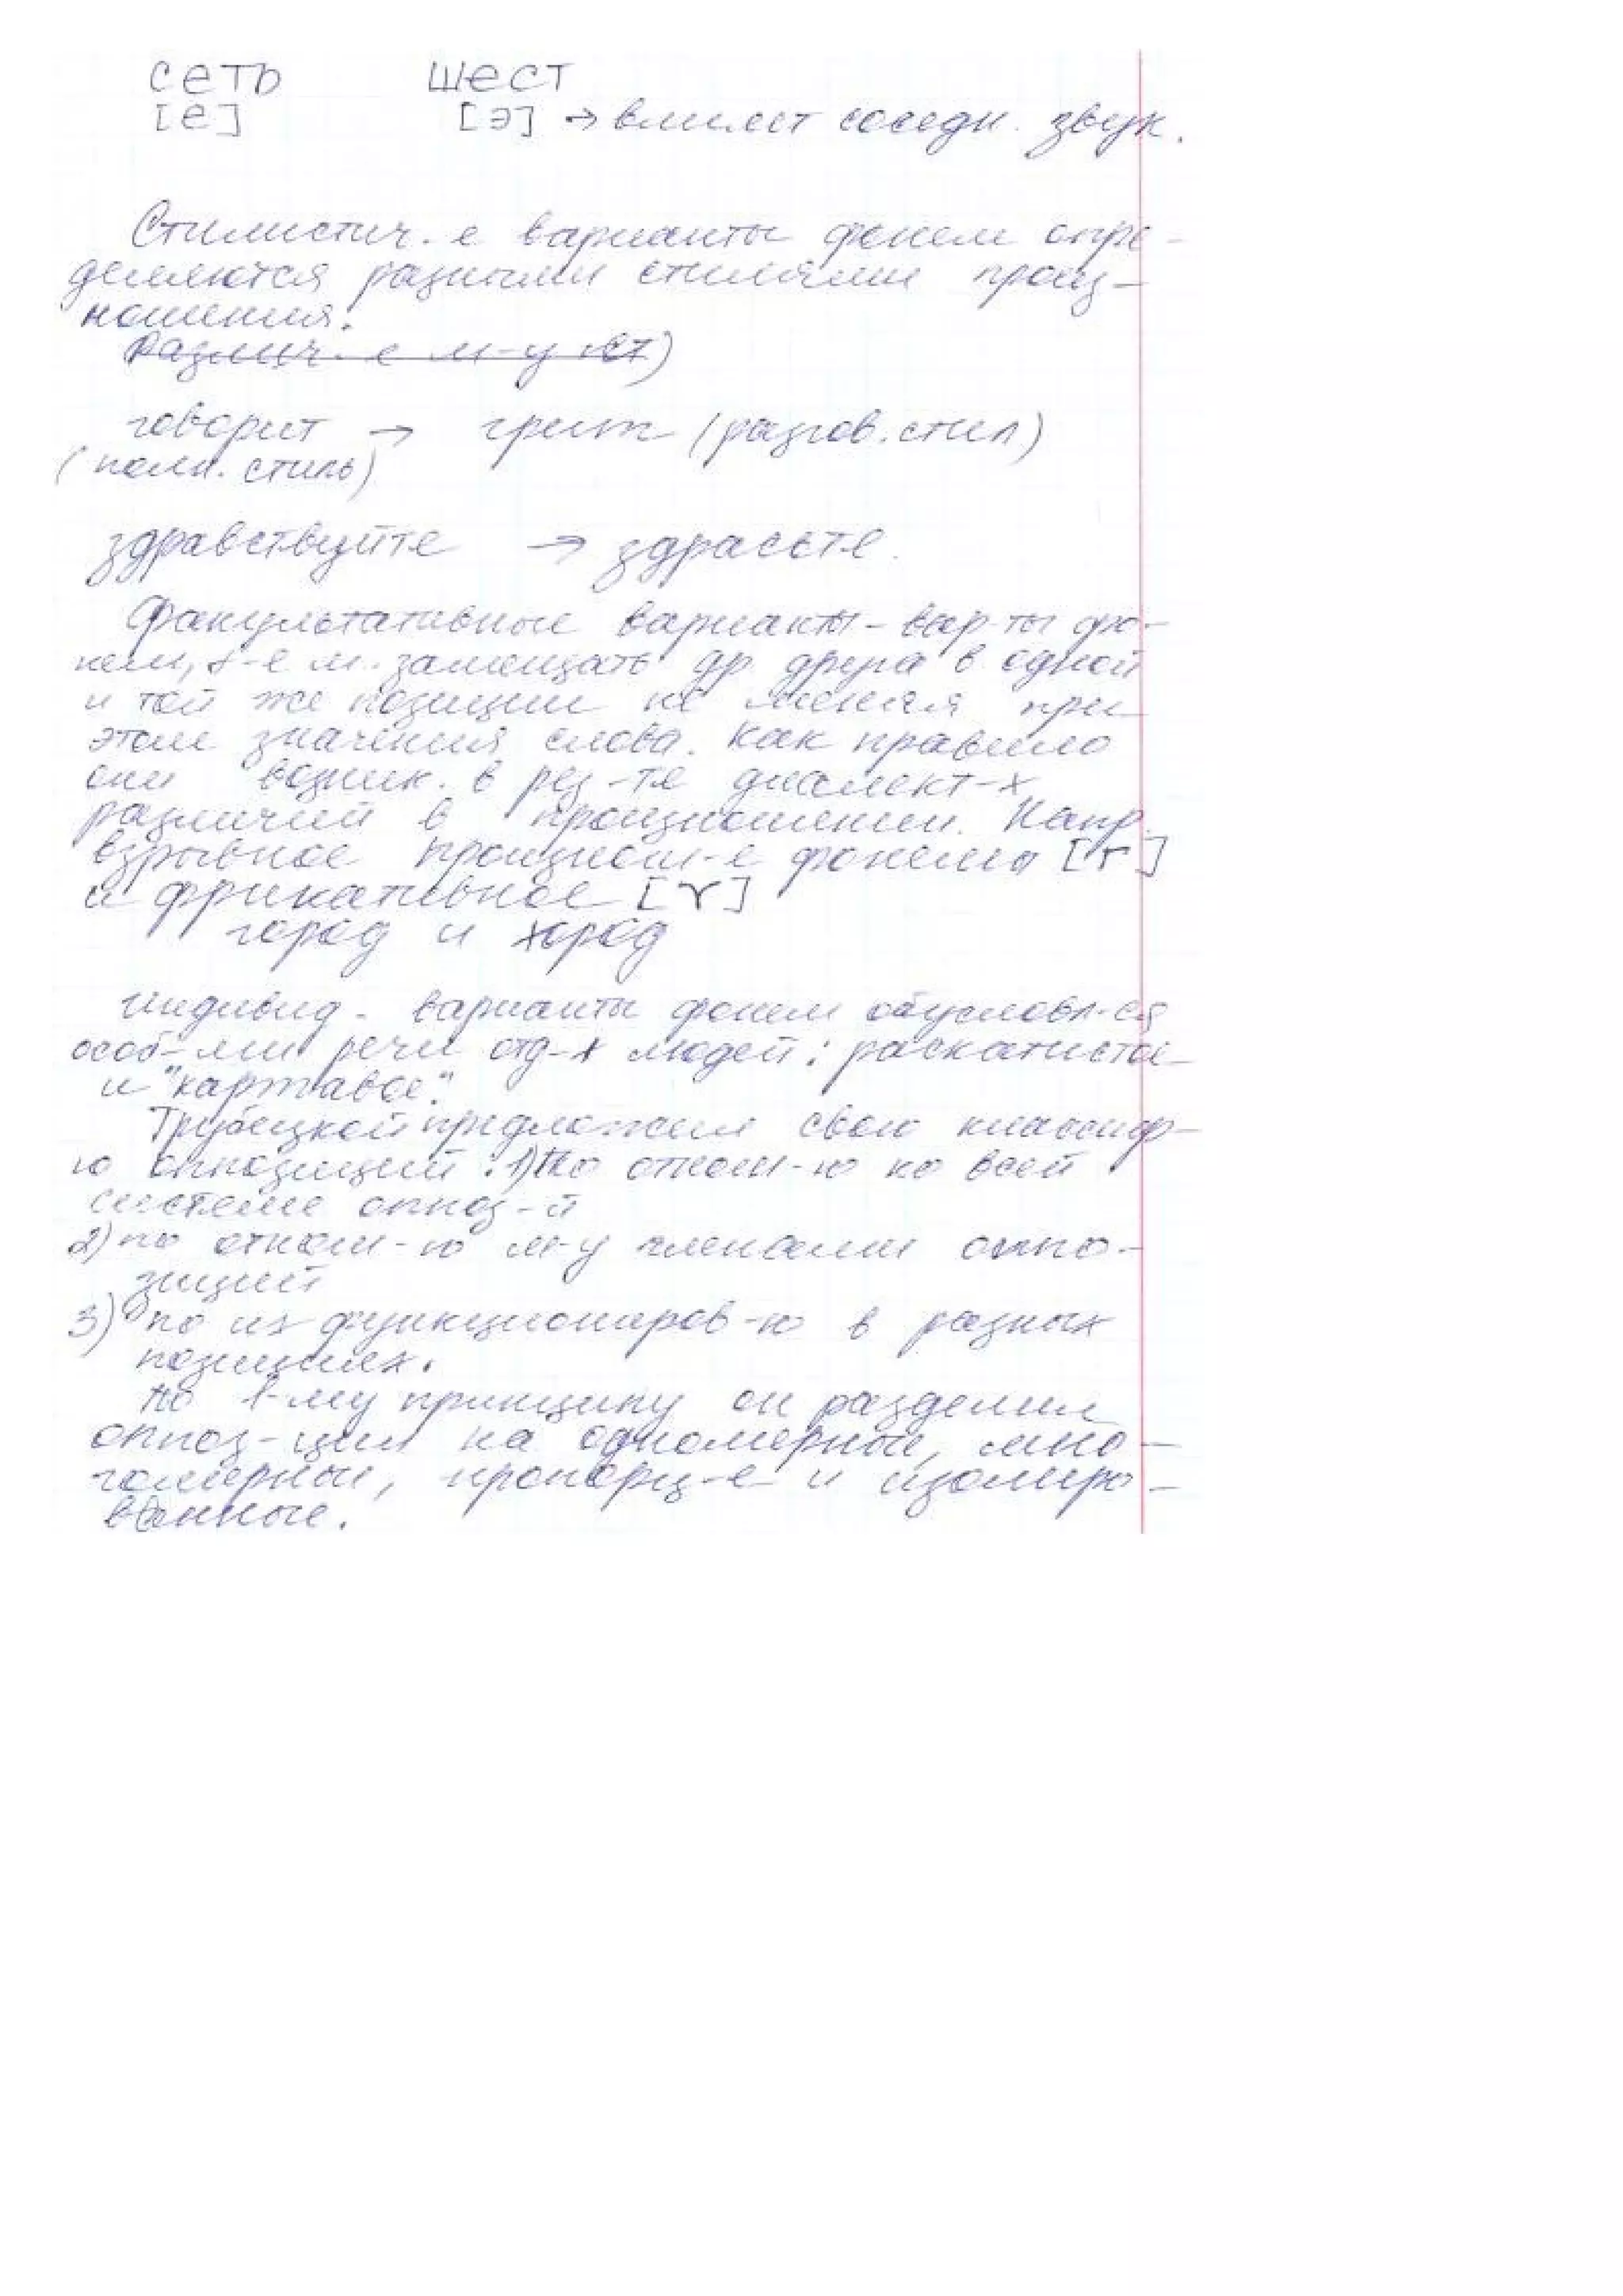 сеть шест
[е] [э] → влияет соседн. звук.
Стилистич-е варианты фонем опре-
деляются разными стилями произ-
ношения.
Различ-е м-у ст)
говорит → грит (разгов. стил)
(полн. стиль)
здравствуйте → здрасьте.
Факультативные варианты - вар-ты фо-
нем, к-е м. замещать др друга в одной
и той же позиции не меняя при
этом значения слова. Как правило
они возник. в рез-те диалект-х
различий в произношении. Напр.
взрывное произнош-е фонемы [г]
и фрикативное [γ]
город и хород
Индивид. варианты фонем обусловл-ся
особ-ми речи отд-х людей: раскатистое
и "картавое".
Трубецкой предложил свою классиф-
ю оппозиций: 1) по отнош-ю ко всей
системе оппоз-й
2) по отнош-ю м-у членами оппо-
зиций
3) по их функциониров-ю в разных
позициях.
По 1-му принципу он разделил
оппоз-ции на одномерные, мно-
гомерные, пропорц-е и изолиро-
ванные.